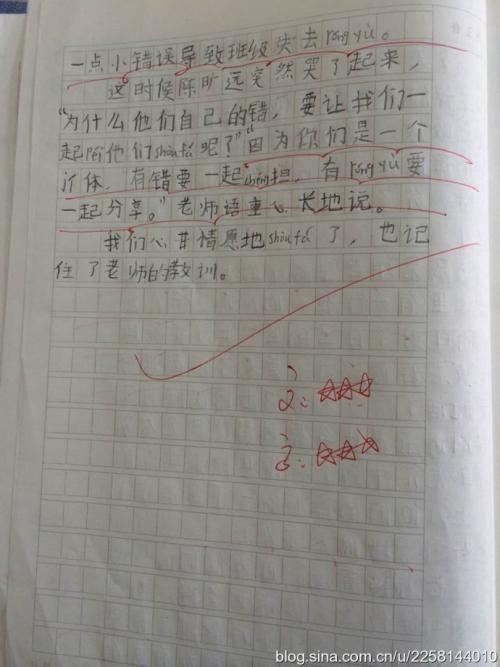 一点小错误导致班级失去róng yù。
这时候陈旷远突然哭了起来，
“为什么他们自己的错，要让我们一
起陪他们shòu fá呢了”“因为你们是一个
介体，有错要一起chéng担，有róng yù要
一起分享。”老师语重心长地说。
我们心甘情愿地shòu fá了，也记
住了老师的教训。
文：☆☆☆
言：☆☆☆
blog.sina.com.cn/u/2258144010